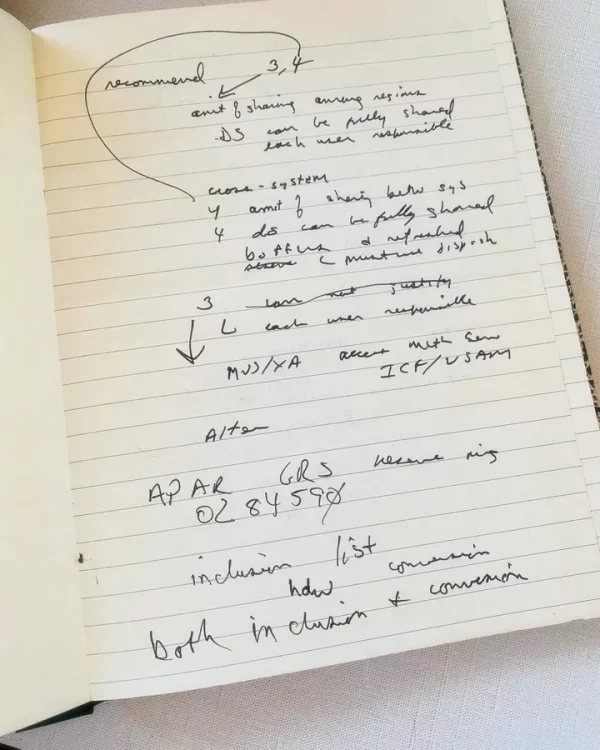 3, 4
recommend
amt of sharing among regions
DS can be fully shared
each user responsible
cross-system
4 amt of sharing betw sys
4 ds can be fully shared
buffers & refreshed
must use
3 can not justify
each user responsible
MVS/XA access meth serv
ICF/VSAM
Alter
APAR GRS reserve ring
0284590
inclusion list
how conversion
both inclusion & conversion